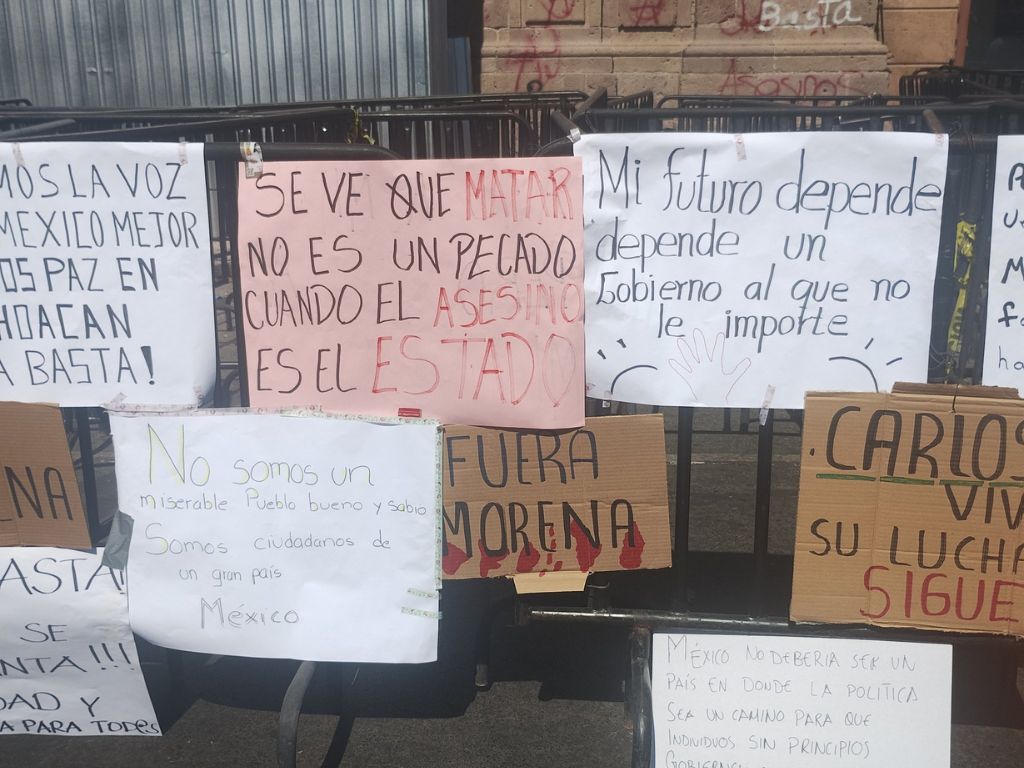 Basta
Asesinos
MOS LA VOZ
MEXICO MEJOR
OS PAZ EN
HOACAN
A BASTA!
SE VE QUE MATAR
NO ES UN PECADO
CUANDO EL ASESINO
ES EL ESTADO
Mi futuro depende
depende un
Gobierno al que no
le importe
NA
No somos un
miserable Pueblo bueno y sabio
Somos ciudadanos de
un gran país
México
FUERA
MORENA
.CARLOS
VIV
SU LUCHA
SIGUE
ASTA!
SE
NTA!!!
DAD Y
A PARA TODOS
MÉXICO NO DEBERIA SER UN
PAÍS EN DONDE LA POLÍTICA
SEA UN CAMINO PARA QUE
INDIVIDUOS SIN PRINCIPIOS